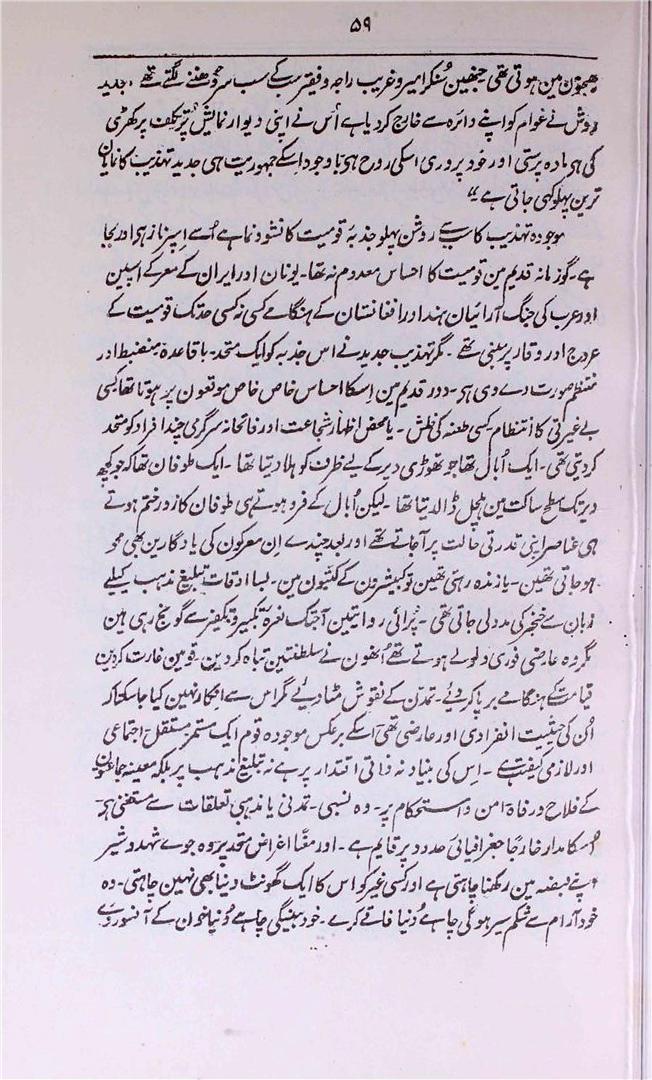 ۵۹
بھجون مین ہوتی تھی جنھین سُنکر امیر و غریب راجہ و فقیر سب کے سب سر دُھننے لگتے تھے، جدید
روش نے عوام کو اپنے دائرہ سے خارج کردیا ہے اُس نے اپنی دیوار نمایش و تکلف پر کھڑی
کی ہی مادہ پرستی اور خود پروری اسکی روح ہی باوجود اسکے جمہوریت ہی جدید تہذیب کا نمایان
ترین پہلو کہی جاتی ہے“
موجودہ تہذیب کا سب سے روشن پہلو جذبہ قومیت کا نشوونما ہے اُسے اسپر ناز ہی اور بجا
ہے۔ گو زمانہ قدیم مین قومیت کا احساس معدوم نہ تھا۔ یونان اور ایران کے معرکے اسپین
اور عرب کی جنگ آرائیان ہند اور افغانستان کے ہنگامے کسی نہ کسی حد تک قومیت کے
عروج اور وقار پر مبنی تھے۔ مگر تہذیب جدید نے اس جذبہ کو ایک متحد۔ باقاعدہ منضبط اور
منتظم صورت دے دی ہی۔ دور قدیم مین اسکا احساس خاص خاص موقعون پر ہوتا تھا کسی
بے غیرتی کا انتظام کسی طعنہ کی خلش۔ یا محض اظہار شجاعت اور فاتحانہ سرگرمی چند افراد کو متحد
کردیتی تھی۔ ایک اُبال تھا جو تھوڑی دیر کے لیے ظرف کو ہلا دیتا تھا۔ ایک طوفان تھا کہ جو کچھ
دیر تک سطح ساکت مین ہلچل ڈالدیتا تھا۔ لیکن اُبال کے فرو ہوتے ہی طوفان کا زور ختم ہوتے
ہی عناصر اپنی قدرتی حالت پر آجاتے تھے اور بعد چندے ان معرکون کی یادگارین بھی محو
ہوجاتی تھین۔ یا زندہ رہتی تھین تو کبیشرون کے کبتون مین۔ بسا اوقات تبلیغ مذہب کیلئے
زبان سے خنجر کی مدد لی جاتی تھی۔ پُرانی روایتین آجتک نعرۂ تکبیر و تکفیر سے گونج رہی ہین
مگر وہ عارضی فوری ولولے ہوتے تھے اُنھون نے سلطنتین تباہ کردین۔ قومین غارت کردین
قیامت کے ہنگامے برپا کردئے۔ تمدن کے نقوش مٹا دیے مگر اس سے انکار نہین کیا جاسکتا کہ
اُن کی حیثیت انفرادی اور عارضی تھی اسکے برعکس موجودہ قوم ایک مستمر مستقل اجتماعی
اور لازمی کیفیت ہے۔ اس کی بنیاد نہ ذاتی اقتدار پر ہے نہ تبلیغ مذہب پر بلکہ معینہ جماعتون
کے فلاح و رفاہ امن و استحکام پر۔ وہ نسبی۔ تمدنی یا مذہبی تعلقات سے مستغنی ہی۔
اسکا مدار خارجًا جغرافیائی حدود پر قایم ہے۔ اور معنًا اغراض متحد پر وہ جوے شہد و شیر
اپنے قبضہ مین رکھنا چاہتی ہے اور کسی غیر کو اس کا ایک گھونٹ دینا بھی نہین چاہتی۔ وہ
خود آرام سے شکم سیر ہوگی چاہے دُنیا فاقے کرے۔ خود ہنسیگی چاہے دُنیا خون کے آنسو روے